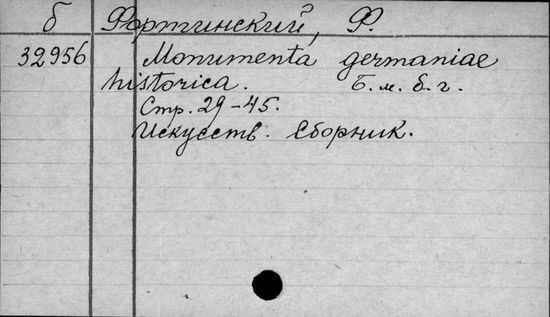 б Фортинский, Ф.
32956 Monumenta germaniae
historica. Б. м. б. г.
Стр. 29-45.
Искусств. Сборник.